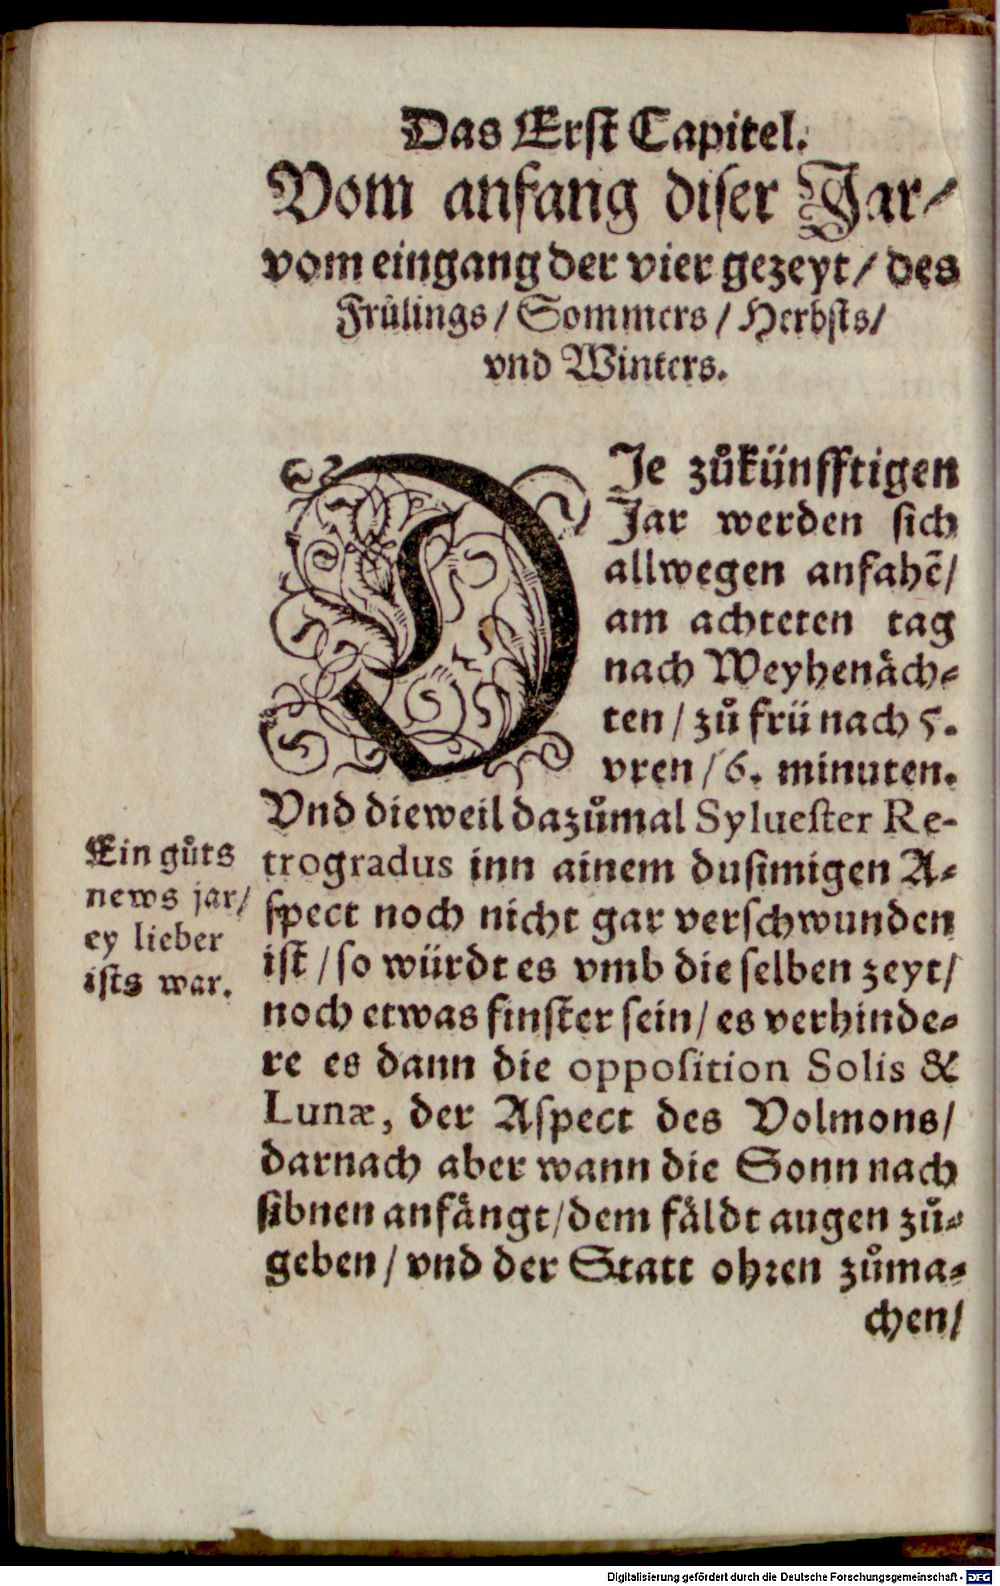 Das Erst Capitel.
Vom anfang diser Jar/
vom eingang der vier gezeyt/ des
Frülings/ Sommers/ Herbsts/
vnd Winters.
DIe zůkünfftigen
Jar werden sich
allwegen anfahẽ/
am achteten tag
nach Weyhenäch-
ten/ zů frü nach 5.
vren/ 6. minuten.
Vnd dieweil dazůmal Syluester Re-
trogradus inn ainem dusimigen A-
spect noch nicht gar verschwunden
ist/ so würdt es vmb die selben zeyt/
noch etwas finster sein/ es verhinde-
re es dann die opposition Solis &
Lunæ, der Aspect des Volmons/
darnach aber wann die Sonn nach
sibnen anfängt/ dem fäldt augen zů-
geben/ vnd der Statt ohren zůma-
chen/
Ein gůts
news jar/
ey lieber
ists war.
Digitalisierung gefördert durch die Deutsche Forschungsgemeinschaft - DFG